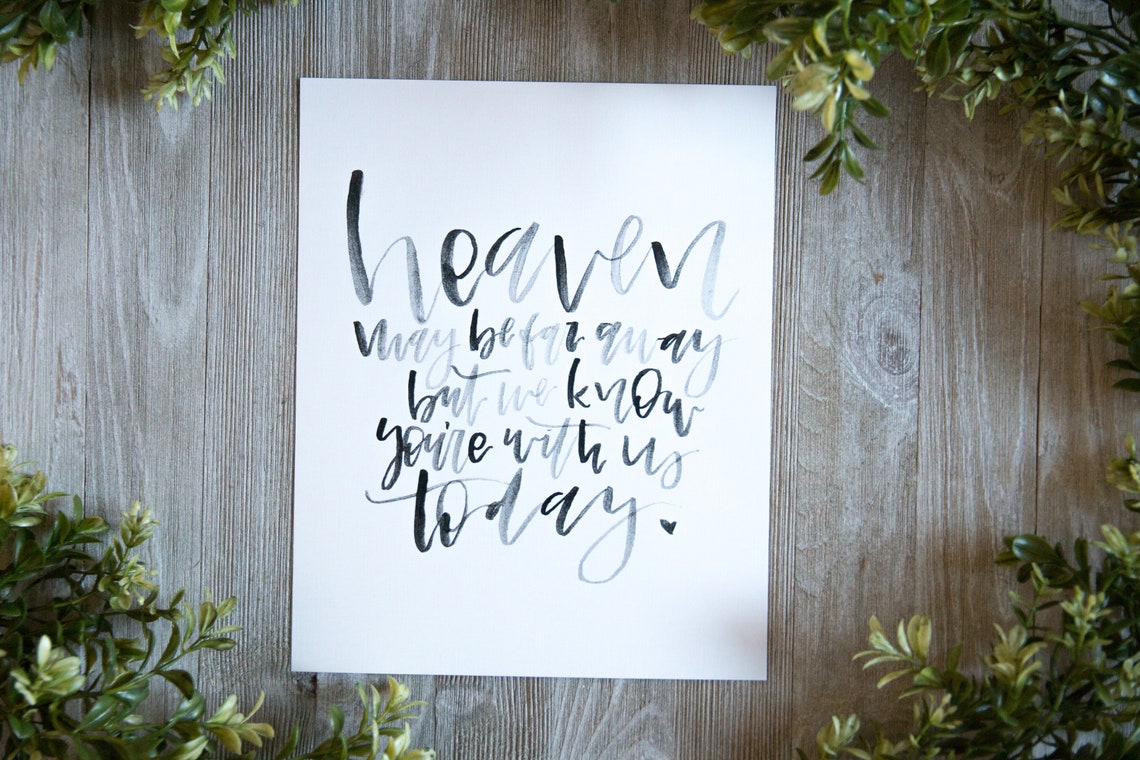 heaven
may be far away
but we know
you're with us
today.